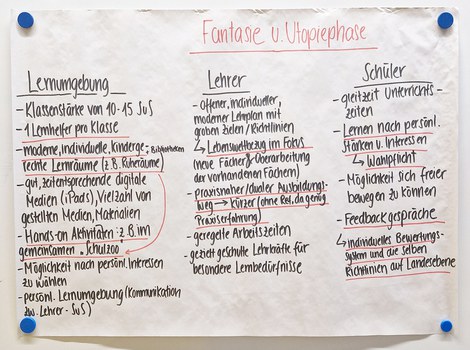 Fantasie u. Utopiephase
Lernumgebung
- Klassenstärke von 10-15 SuS
- 1 Lernhelfer pro Klasse
- moderne, individuelle, kinderge- ; Bibliotheken
rechte Lernräume (z.B. Ruheräume)
- gut, zeitentsprechende digitale
Medien (iPads), Vielzahl von
gestellten Medien, Materialien
- Hands-on Aktivitäten: z.B. im
gemeinsamen „Schulzoo"
- Möglichkeit nach persönl. Interessen
zu wählen
- persönl. Lernumgebung (Kommunikation
zw. Lehrer - SuS)
Lehrer
- offener, individueller,
moderner Lehrplan mit
groben Zielen/Richtlinien
↳ Lebensweltbezug im Fokus
(neue Fächer & Überarbeitung
der vorhandenen Fächern)
- praxisnaher/dualer Ausbildungs-
weg → kürzer (ohne Ref, da genug
Praxiserfahrung)
- geregelte Arbeitszeiten
- gezielt geschulte Lehrkräfte für
besondere Lernbedürfnisse
Schüler
- gleitzeit Unterrichts-
zeiten
- Lernen nach persönl.
Stärken u. Interessen
↳ Wahlpflicht
- Möglichkeit sich freier
bewegen zu können
- Feedbackgespräche
↳ individuelles Bewertungs-
system und die selben
Richtlinien auf Landesebene